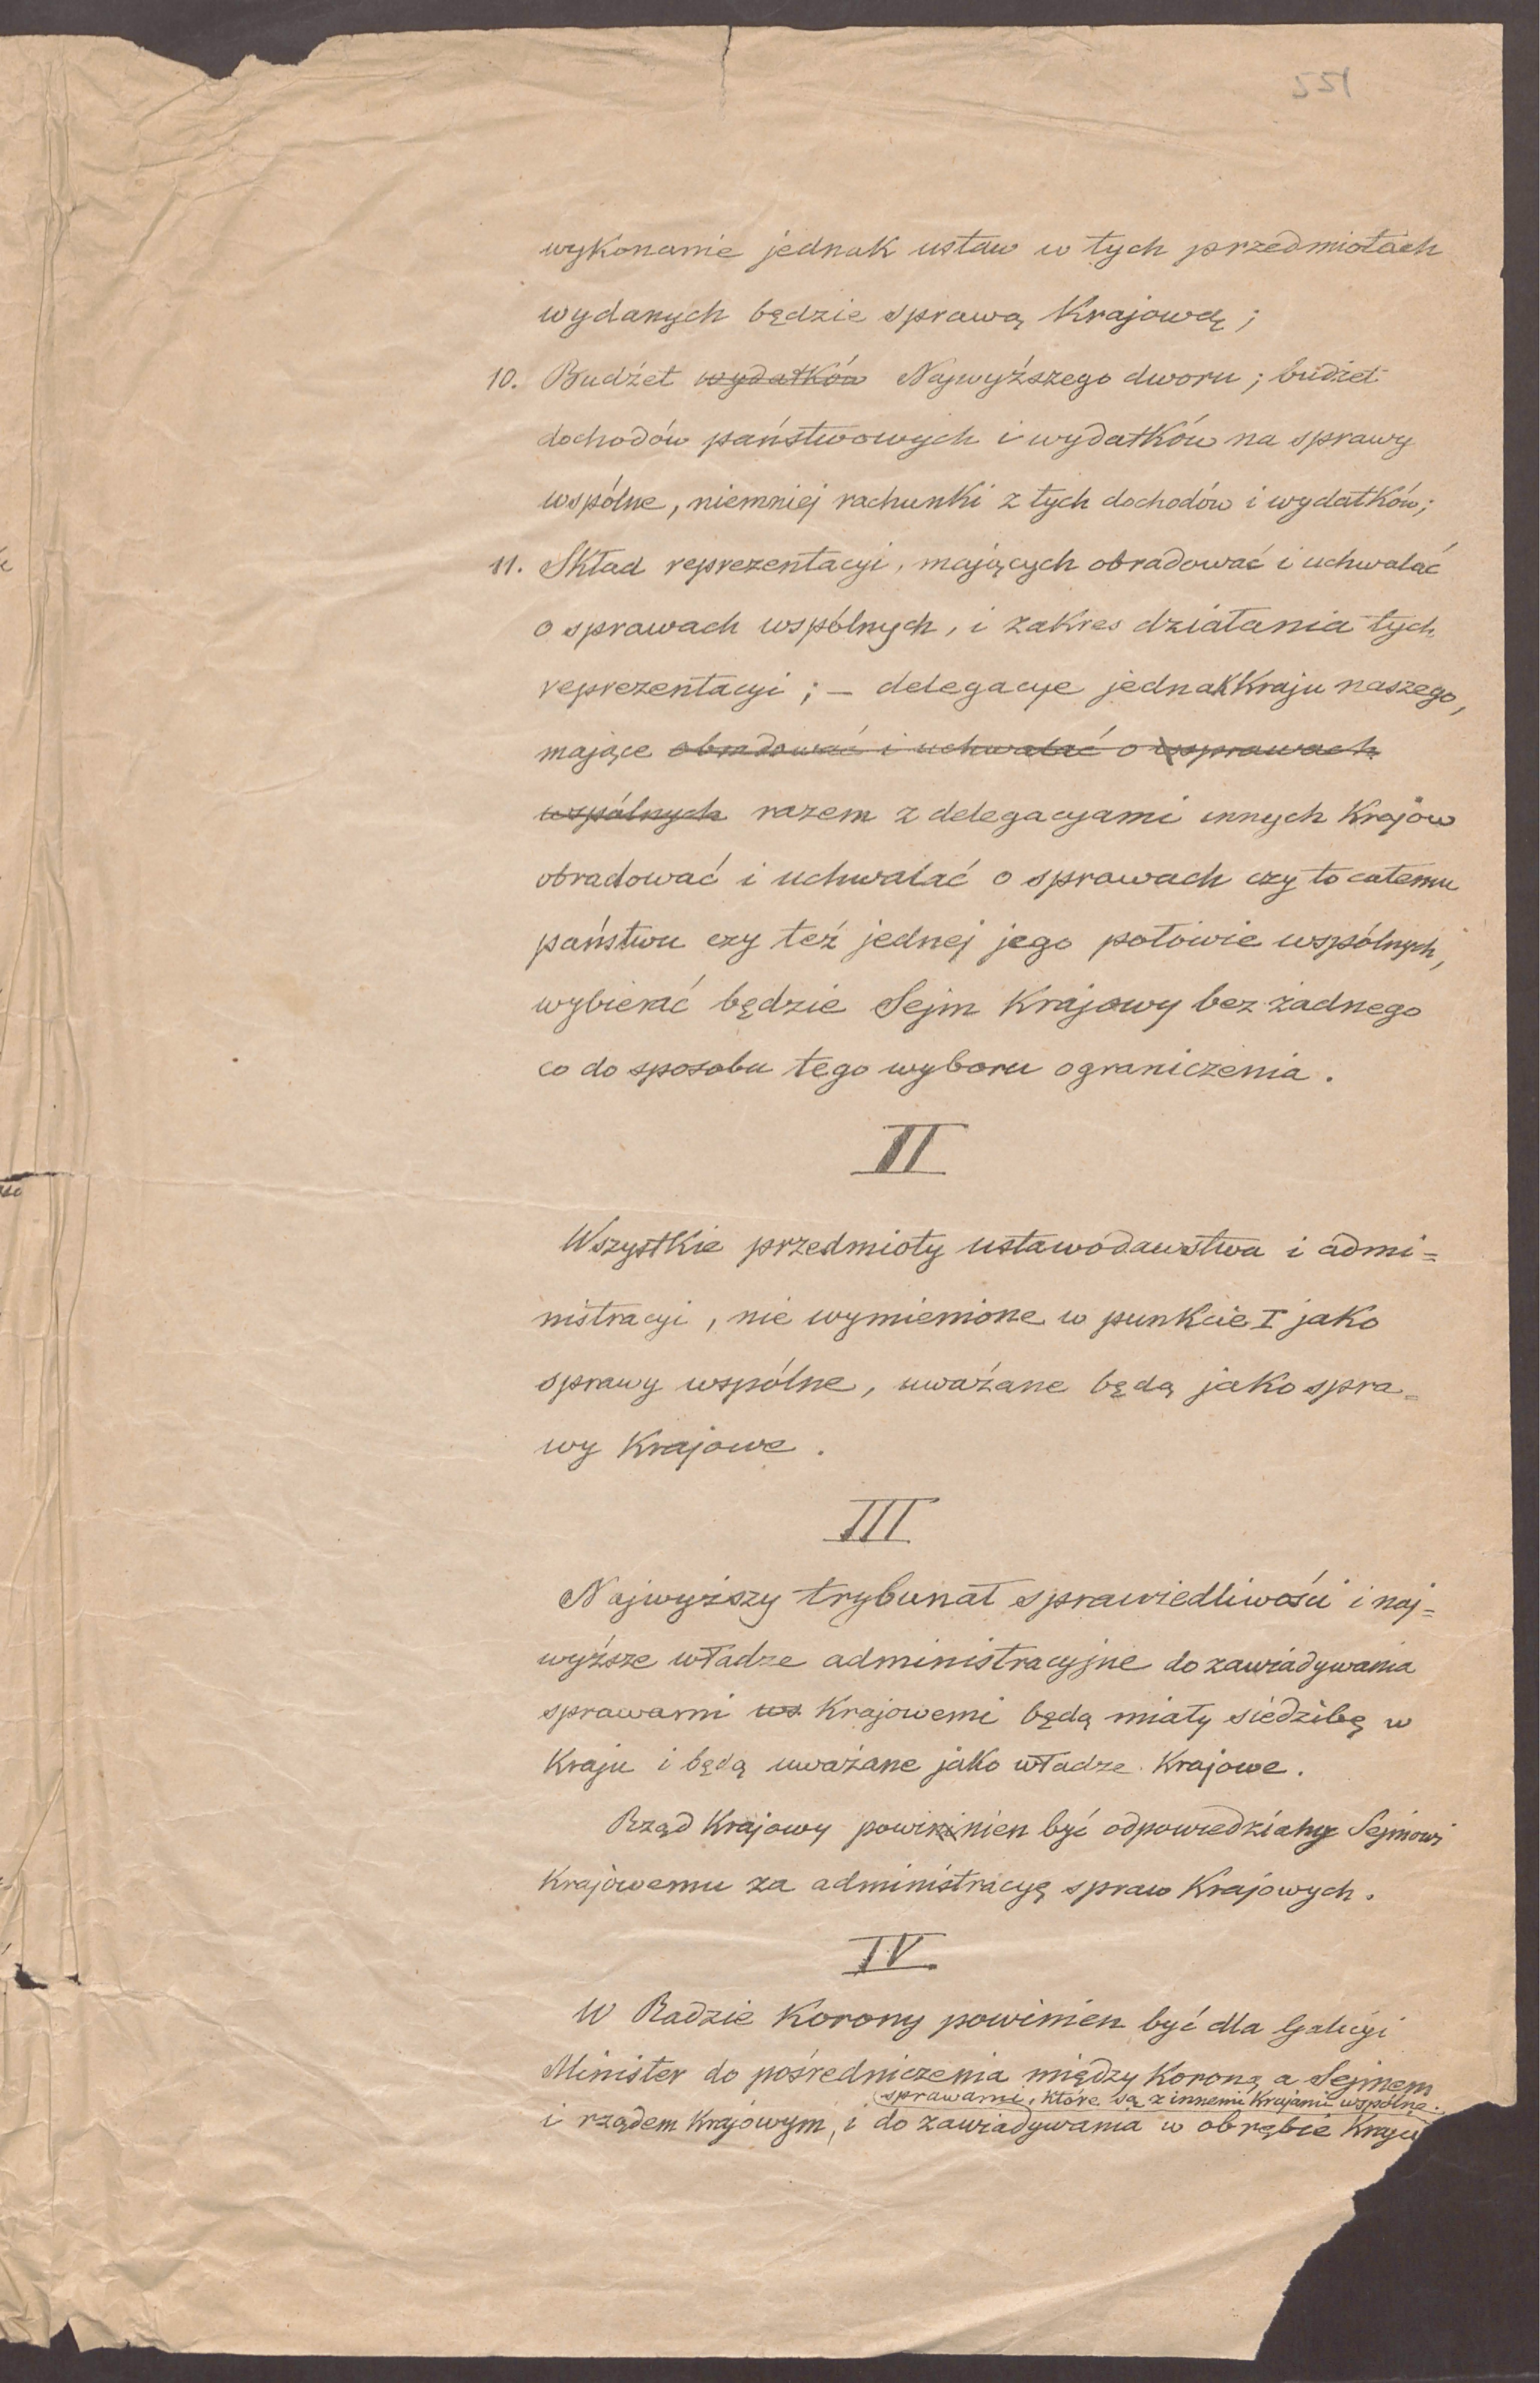 551
wykonanie jednak ustaw w tych przedmiotach
wydanych będzie sprawą Krajową;
10. Budżet wydatków Najwyższego dworu; budżet
dochodów państwowych i wydatków na sprawy
wspólne, niemniej rachunki z tych dochodów i wydatków;
11. Skład reprezentacyi, mających obradować i uchwalać
o sprawach wspólnych, i zakres działania tych
reprezentacyi; – delegacye jednak Kraju naszego,
mające obradować i uchwalać o sprawach
wspólnych razem z delegacyami innych Krajów
obradować i uchwalać o sprawach czy to całemu
państwu czy też jednej jego połowie wspólnych,
wybierać będzie Sejm Krajowy bez żadnego
co do sposobu tego wyboru ograniczenia.
II
Wszystkie przedmioty ustawodawstwa i admi=
nistracyi, nie wymienione w punkcie I jako
sprawy wspólne, uważane będą jako spra=
wy Krajowe.
III
Najwyższy trybunał sprawiedliwości i naj=
wyższe władze administracyjne do zawiadywania
sprawami ws Krajowemi będą miały siedzibę w
Kraju i będą uważane jako władze Krajowe.
Rząd Krajowy powinien być odpowiedzialny Sejmowi
Krajowemu za administracyę spraw Krajowych.
IV
W Radzie Korony powinien być dla Galicyi
Minister do pośredniczenia między Koroną a Sejmem
sprawami, które są z innemi Krajami wspólne.
i rządem Krajowym, i do zawiadywania w obrębie Kraju